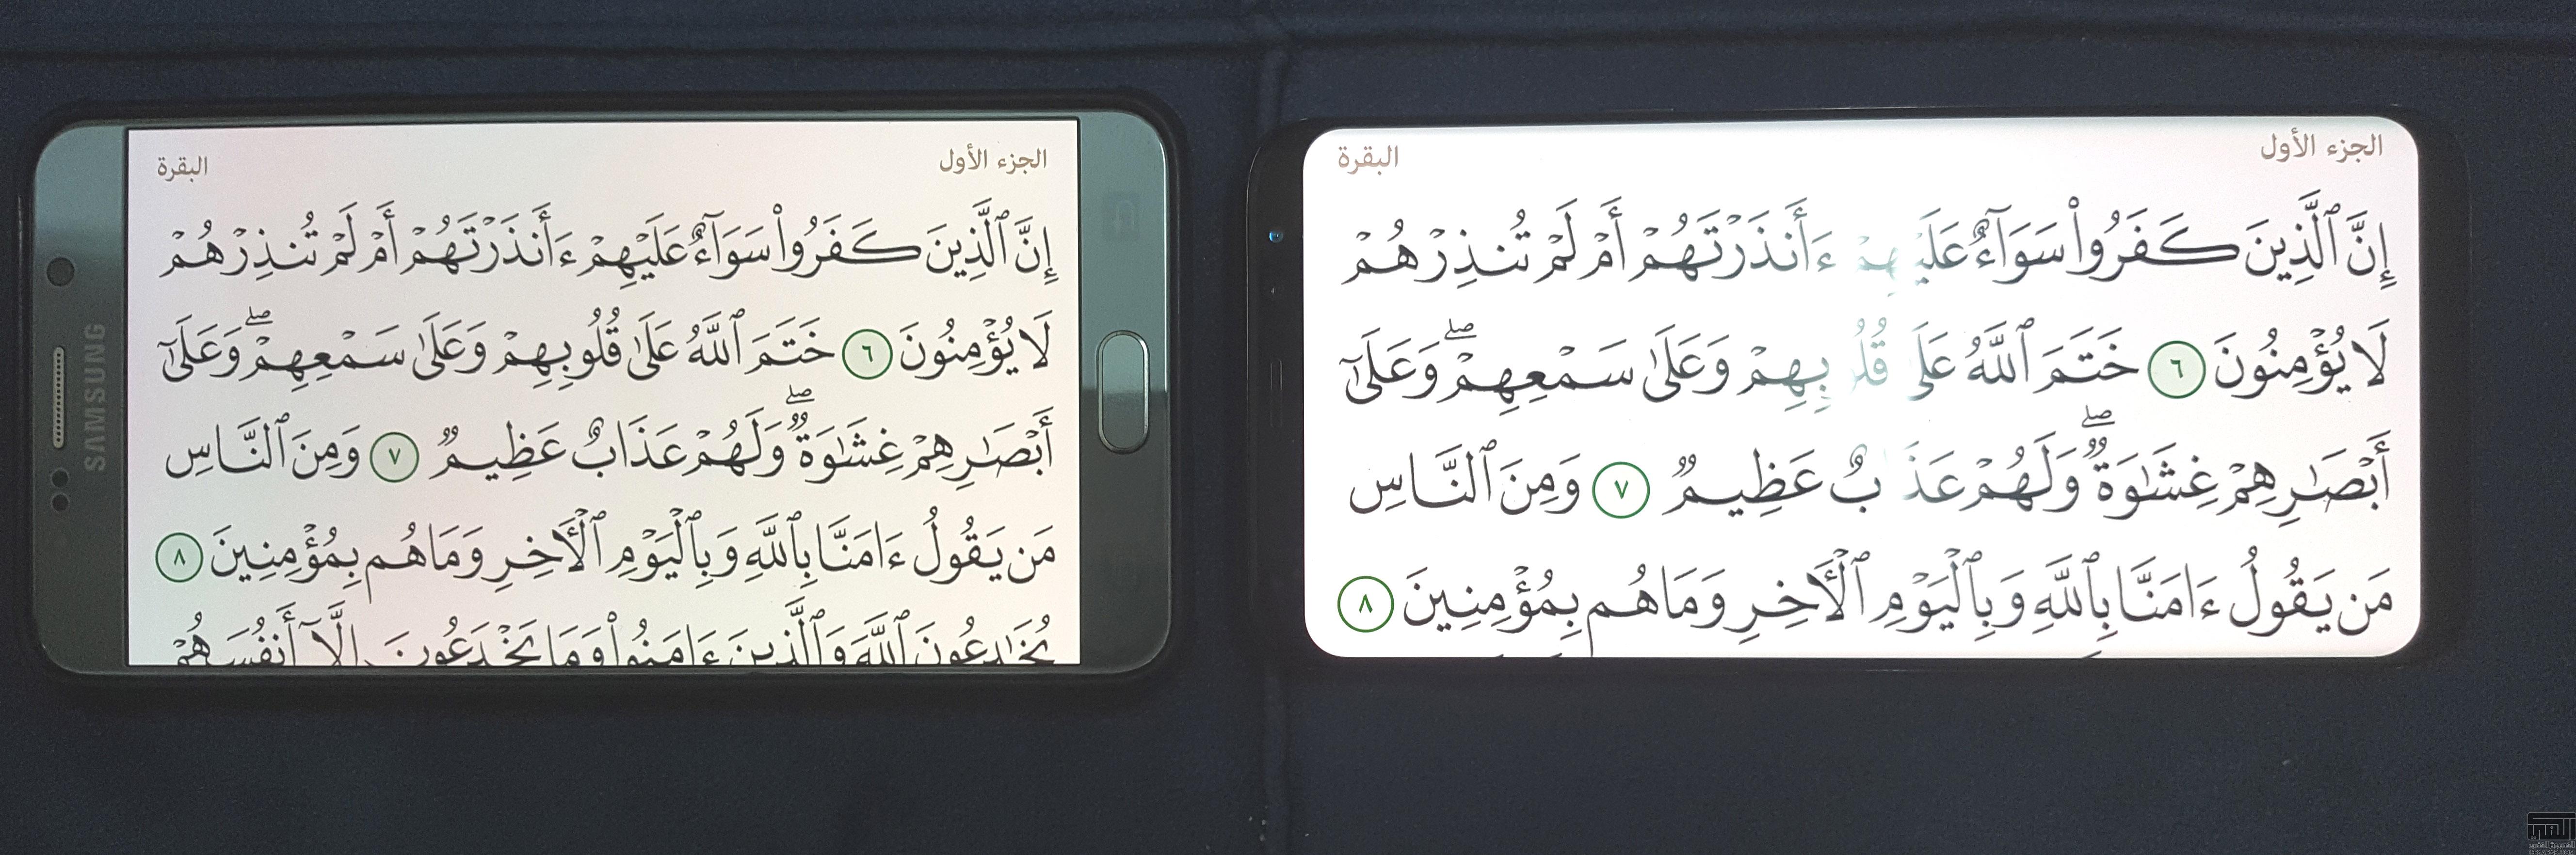 الجزء الأول
البقرة
إِنَّ ٱلَّذِينَ كَفَرُوا۟ سَوَآءٌ عَلَيْهِمْ ءَأَنذَرْتَهُمْ أَمْ لَمْ تُنذِرْهُمْ
لَا يُؤْمِنُونَ ٦ خَتَمَ ٱللَّهُ عَلَىٰ قُلُوبِهِمْ وَعَلَىٰ سَمْعِهِمْ ۖ وَعَلَىٰٓ
أَبْصَـٰرِهِمْ غِشَـٰوَةٌ ۖ وَلَهُمْ عَذَابٌ عَظِيمٌ ٧ وَمِنَ ٱلنَّاسِ
مَن يَقُولُ ءَامَنَّا بِٱللَّهِ وَبِٱلْيَوْمِ ٱلْـَٔاخِرِ وَمَا هُم بِمُؤْمِنِينَ ٨
يُخَـٰدِعُونَ ٱللَّهَ وَٱلَّذِينَ ءَامَنُوا۟ وَمَا يَخْدَعُونَ إِلَّآ أَنفُسَهُمْ
SAMSUNG
الجزء الأول
البقرة
إِنَّ ٱلَّذِينَ كَفَرُوا۟ سَوَآءٌ عَلَيْهِمْ ءَأَنذَرْتَهُمْ أَمْ لَمْ تُنذِرْهُمْ
لَا يُؤْمِنُونَ ٦ خَتَمَ ٱللَّهُ عَلَىٰ قُلُوبِهِمْ وَعَلَىٰ سَمْعِهِمْ ۖ وَعَلَىٰٓ
أَبْصَـٰرِهِمْ غِشَـٰوَةٌ ۖ وَلَهُمْ عَذَابٌ عَظِيمٌ ٧ وَمِنَ ٱلنَّاسِ
مَن يَقُولُ ءَامَنَّا بِٱللَّهِ وَبِٱلْيَوْمِ ٱلْـَٔاخِرِ وَمَا هُم بِمُؤْمِنِينَ ٨